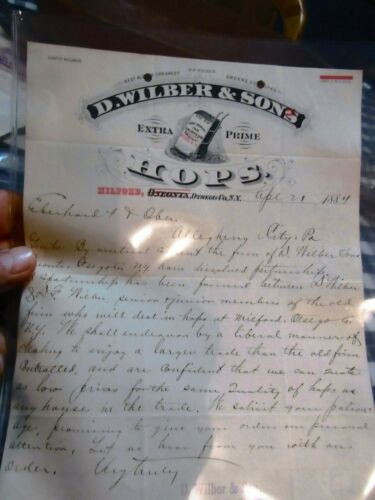 D. WILBER & SONS
EXTRA PRIME
HOPS.
MILFORD, ONEONTA, OTSEGO CO., N.Y. Apl 21 1884
Eberhardt & Ober
Allegheny City, Pa
Gents: By mutual the firm of D. Wilber & Sons
Otsego Co N.Y. have dissolved partnership. A
Copartnership has been formed between D. Wilber
& Wilber, senior & junior members of the old
firm who will deal in hops at Milford, Otsego Co
N.Y. We shall endeavor by a liberal manner of
dealing to enjoy a larger trade than the old firm
controlled, and are confident that we can quote
as low prices for the same quality of hops as
any house in the trade. We solicit your patron-
age, promising to give your orders our personal
attention. Let us hear from you with an
order. Very truly
D. Wilber &